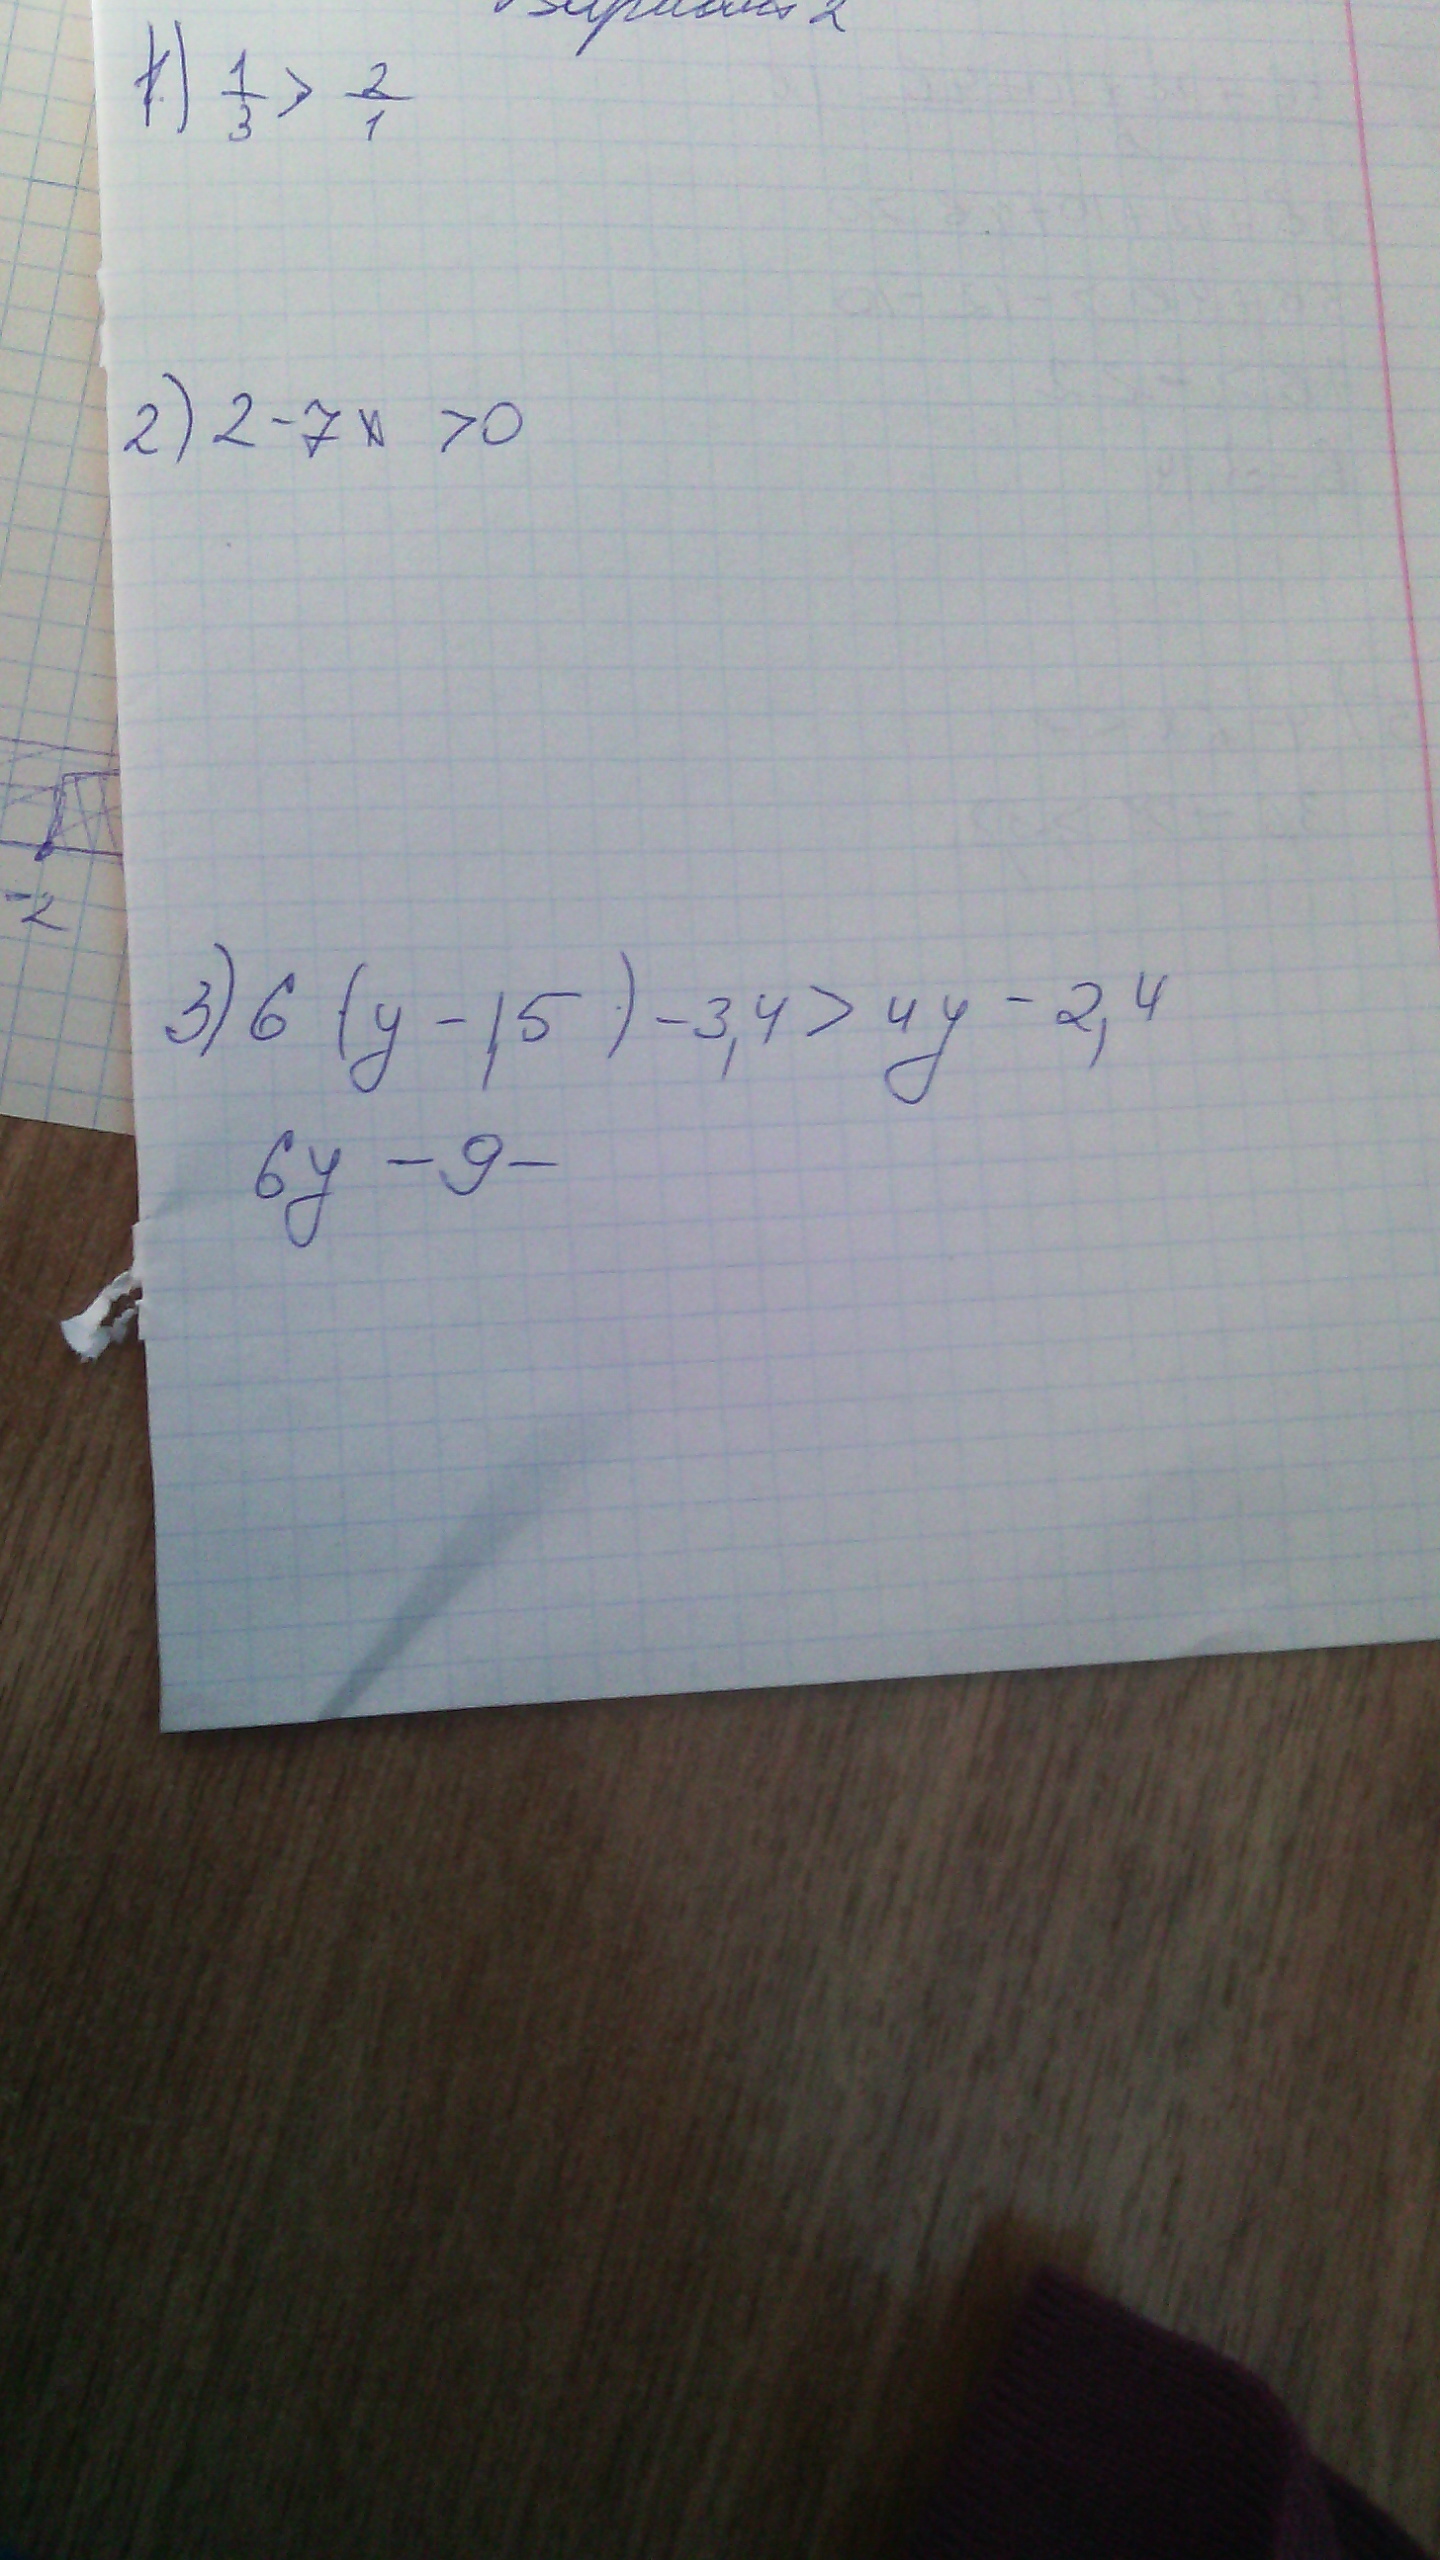 Вариант 2
1) 1/3 > 2/1
2) 2-7x >0
3) 6 (y -1,5) -3,4> 4y - 2,4
-2
6y -9-